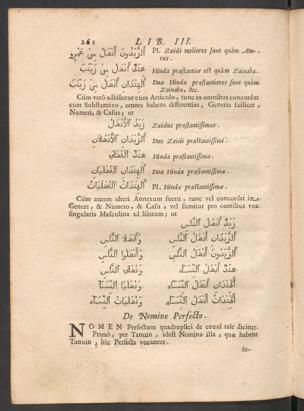 261 LIB. III.
اَلزَّيْدُونَ أَفْضَلُ مِنْ عَمْرٍو Pl. Zaidi meliores sunt quàm Am-
rus.
هِنْدٌ أَفْضَلُ مِنْ زَيْنَبَ Hinda præstantior est quàm Zainaba.
اَلْهِنْدَانِ أَفْضَلُ مِنْ زَيْنَبَ Duæ Hindæ præstantiores sunt quàm
Zainaba, &c.
Cùm verò adhibetur cum Articulo, tunc in omnibus concordat
cum Substantivo, omnes habens differentias, Generis scilicet,
Numeri, & Casus; ut
زَيْدٌ اَلْأَفْضَلُ Zaidus præstantissimus.
اَلزَّيْدَانِ اَلْأَفْضَلَانِ Duo Zaidi præstantissimi.
هِنْدٌ اَلْفُضْلَى Hinda præstantissima.
اَلْهِنْدَانِ اَلْفُضْلَيَانِ Duæ Hindæ præstantissimæ.
اَلْهِنْدَاتُ اَلْفُضْلَيَاتُ Pl. Hindæ præstantissimæ.
Cùm autem alteri Annexum fuerit, tunc vel concordat in
Genere, & Numero, & Casu, vel sumitur pro omnibus vox
singularis Masculina ad libitum; ut
زَيْدٌ أَفْضَلُ النَّاسِ
اَلزَّيْدَانِ أَفْضَلُ النَّاسِ وَأَفْضَلَا النَّاسِ
اَلزَّيْدُونَ أَفْضَلُ النَّاسِ وَأَفْضَلُوا النَّاسِ
هِنْدٌ أَفْضَلُ النِّسَاءِ وَفُضْلَى النِّسَاءِ
اَلْهِنْدَانِ أَفْضَلُ النِّسَاءِ وَفُضْلَيَا النِّسَاءِ
اَلْهِنْدَاتُ أَفْضَلُ النِّسَاءِ وَفُضْلَيَاتُ النِّسَاءِ
De Nomine Perfecto.
NOMEN Perfectum quadruplici de causâ tale dicitur.
Primò, per Tanuin, idest Nomina illa, quæ habent
Tanuin, hîc Perfecta vocantur.
Se-